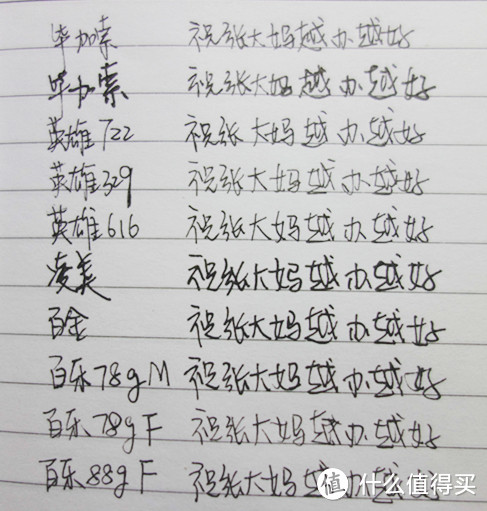 毕加索 祝张大妈越办越好
毕加索 祝张大妈越办越好
英雄722 祝张大妈越办越好
英雄329 祝张大妈越办越好
英雄616 祝张大妈越办越好
凌美 祝张大妈越办越好
百金 祝张大妈越办越好
百乐78g M 祝张大妈越办越好
百乐78g F 祝张大妈越办越好
百乐88g F 祝张大妈越办越好
值 什么值得买